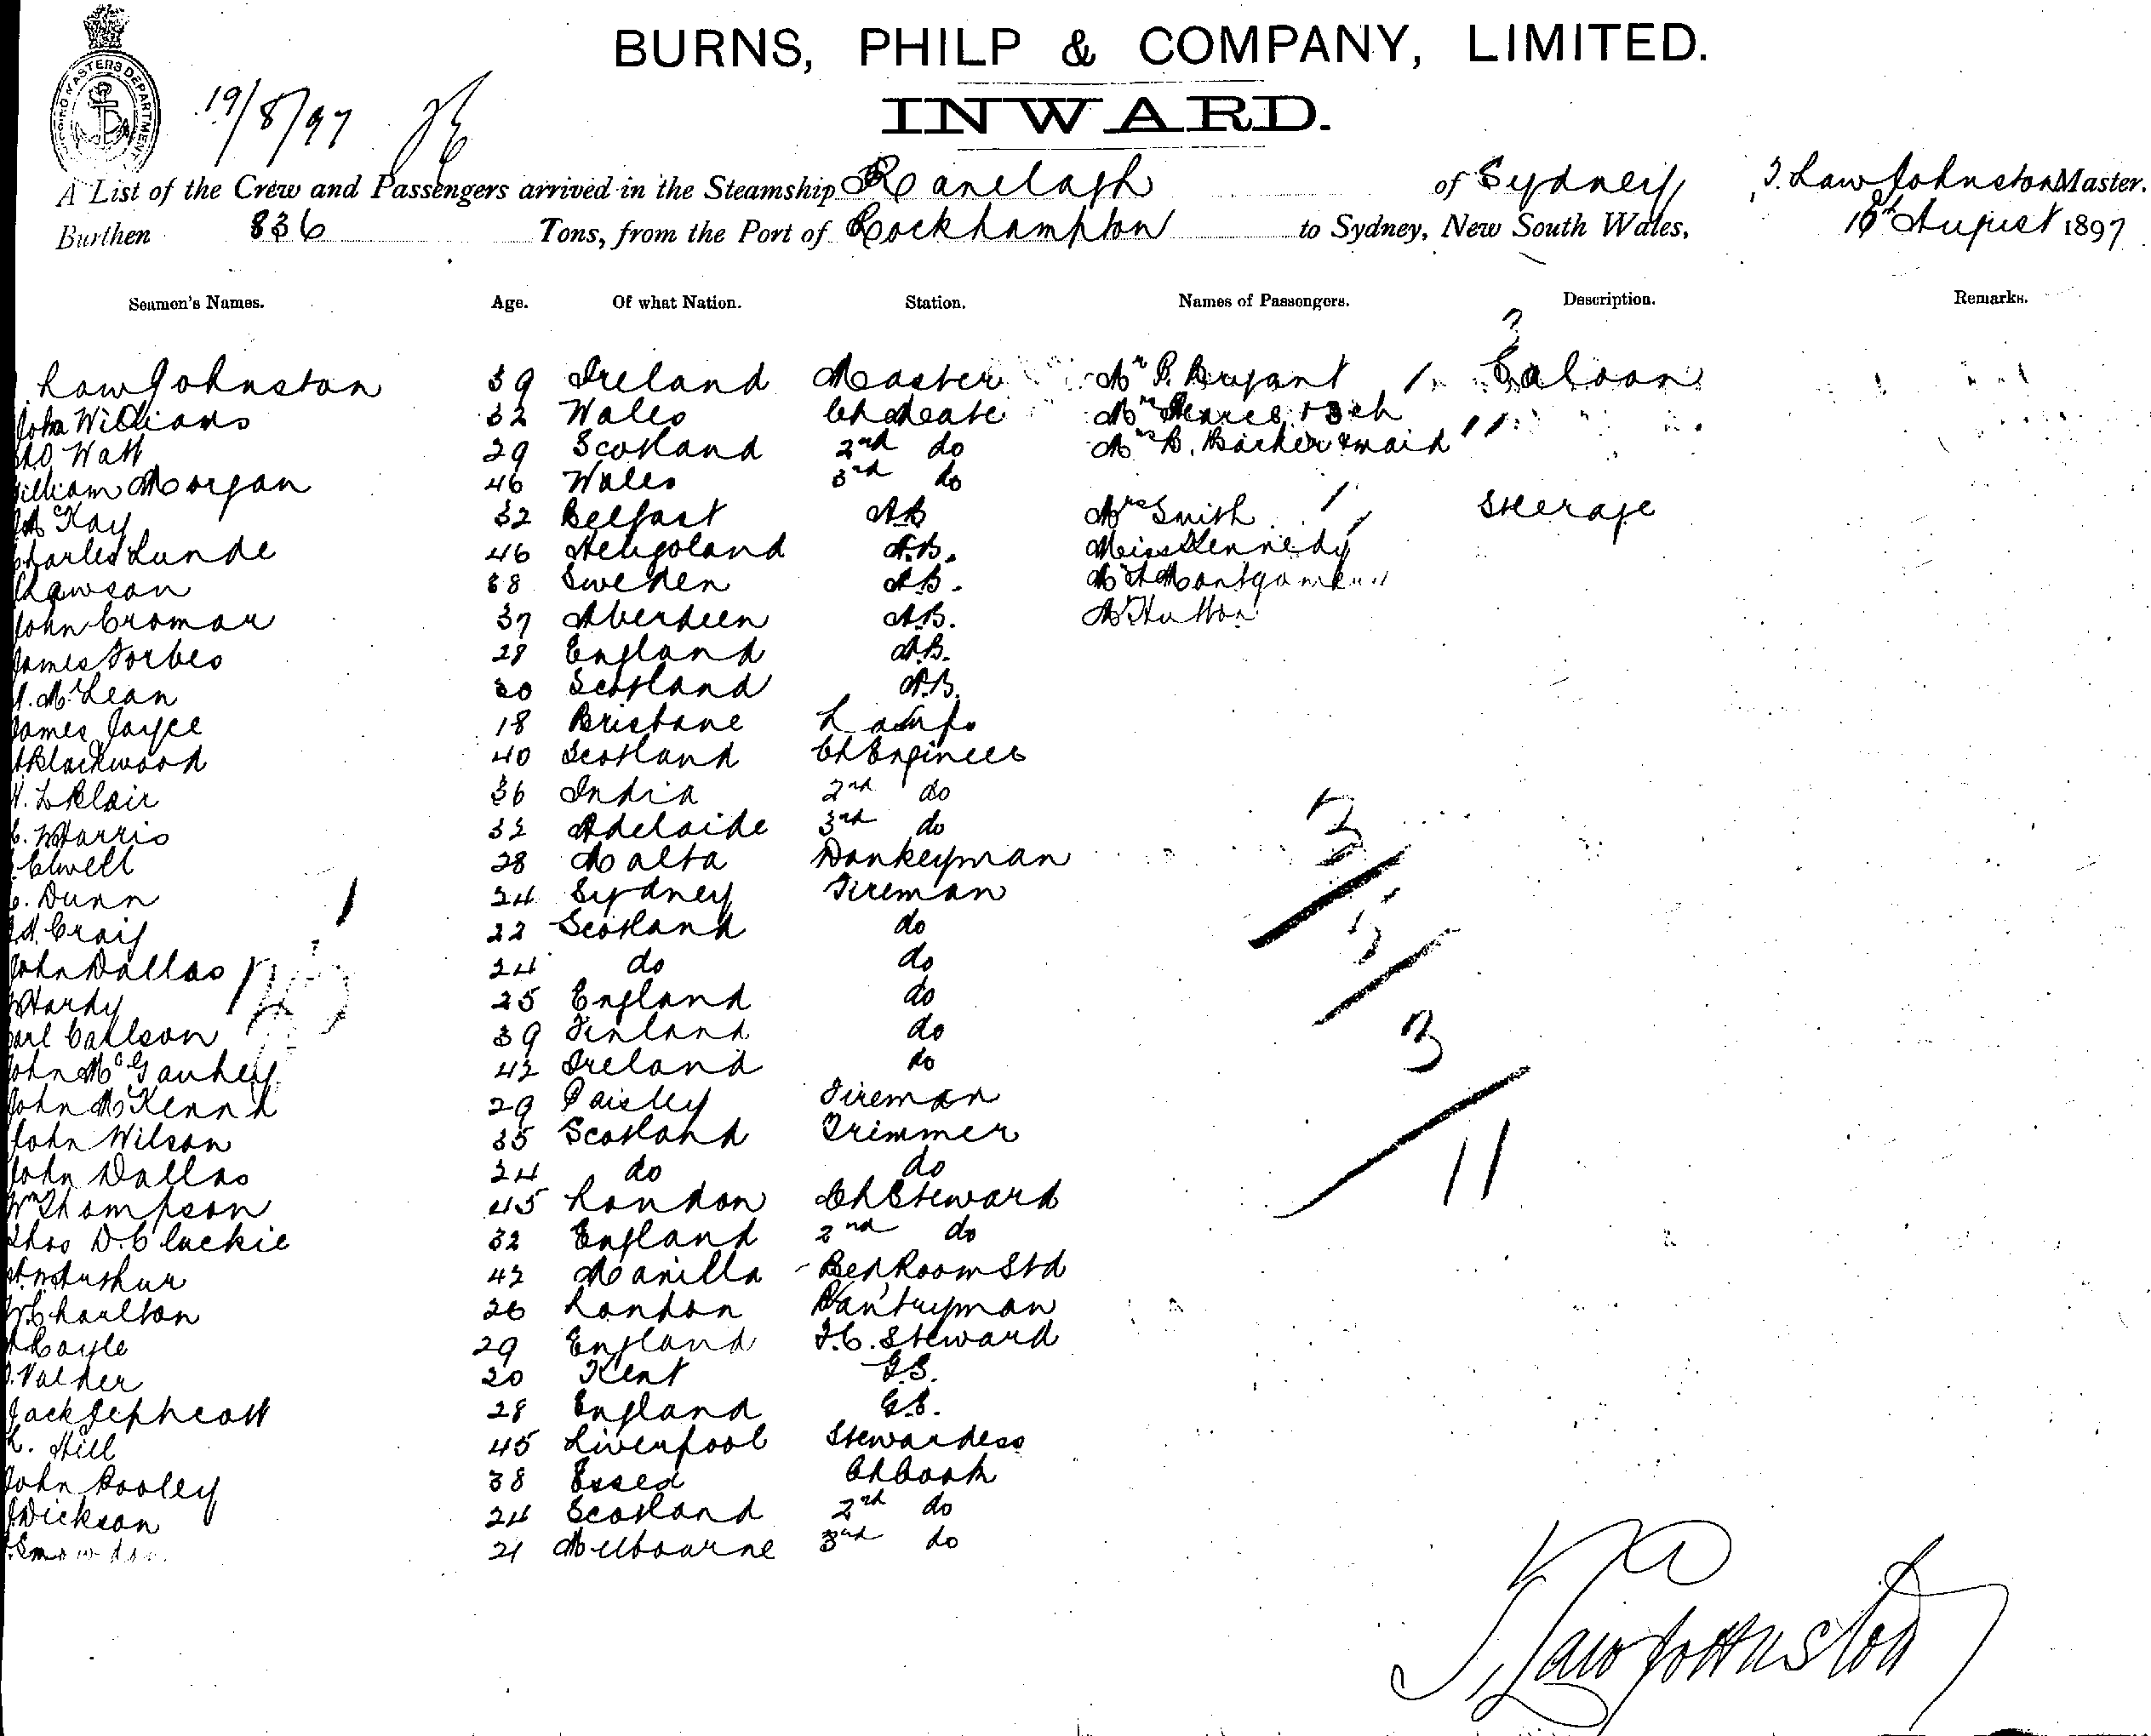 BURNS, PHILP & COMPANY, LIMITED.
INWARD.
SHIPPING MASTERS DEPARTMENT
19/8/97
A List of the Crew and Passengers arrived in the Steamship Ranelagh of Sydney, J. Law Johnston Master.
Burthen 836 Tons, from the Port of Rockhampton to Sydney, New South Wales, August 1897
Seamen's Names. Age. Of what Nation. Station. Names of Passengers. Description. Remarks.
3
Law Johnston 39 Ireland Master Mr P. Bryant 1 Saloon
John Williams 32 Wales Ch Mate Mrs
Watt 29 Scotland 2nd do Mrs B. Barker & maid 11
William Morgan 46 Wales 3rd do
McKay 32 Belfast AB Mrs Smith 1 Steerage
Charles Lunde 46 Heligoland A.B. Miss Kennedy 1
Lawson 38 Sweden AB. Mr A Montgomery
John Cromar 37 Aberdeen A.B. Mr Hutton
James Forbes 28 England A.B.
McLean 30 Scotland A.B.
James Joyce 18 Brisbane Lamps
Blackwood 40 Scotland Ch Engineer
Blair 36 India 2nd do
Harris 32 Adelaide 3rd do
Elwell 28 Malta Donkeyman
Dunn 24 Sydney Fireman
Craig 22 Scotland do
John Dallas 24 do do
Hardy 25 England do
Carl Carlson 39 Finland do
John McGauhey 42 Ireland do
John McKenna 29 Paisley Fireman
John Wilson 35 Scotland Trimmer
John Dallas 24 do do
Wm Thompson 45 London Ch Steward
Thos D. Cluckie 32 England 2nd do
McArthur 42 Manilla Bed Room Std
Charlton 26 London Pantryman
Coyle 29 England F.C. Steward
20 Kent G.S.
Jack Jephcott 28 England G.S.
Hill 45 Liverpool Stewardess
John Pooley 38 Essex Ch Cook
Dickson 24 Scotland 2nd do
Snowdon 21 Melbourne 3rd do
3
11
J. Law Johnston